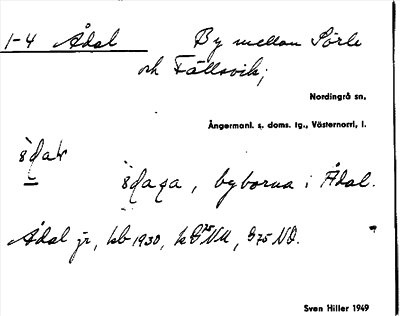 1-4 Ådal By mellan Sörle
och Fällsvik;
Nordingrå sn,
Ångermanl. s. doms. tg., Västernorrl, l.
byborna i Ådal.
Ådal jr, kb 1930,
Sven Hiller 1949